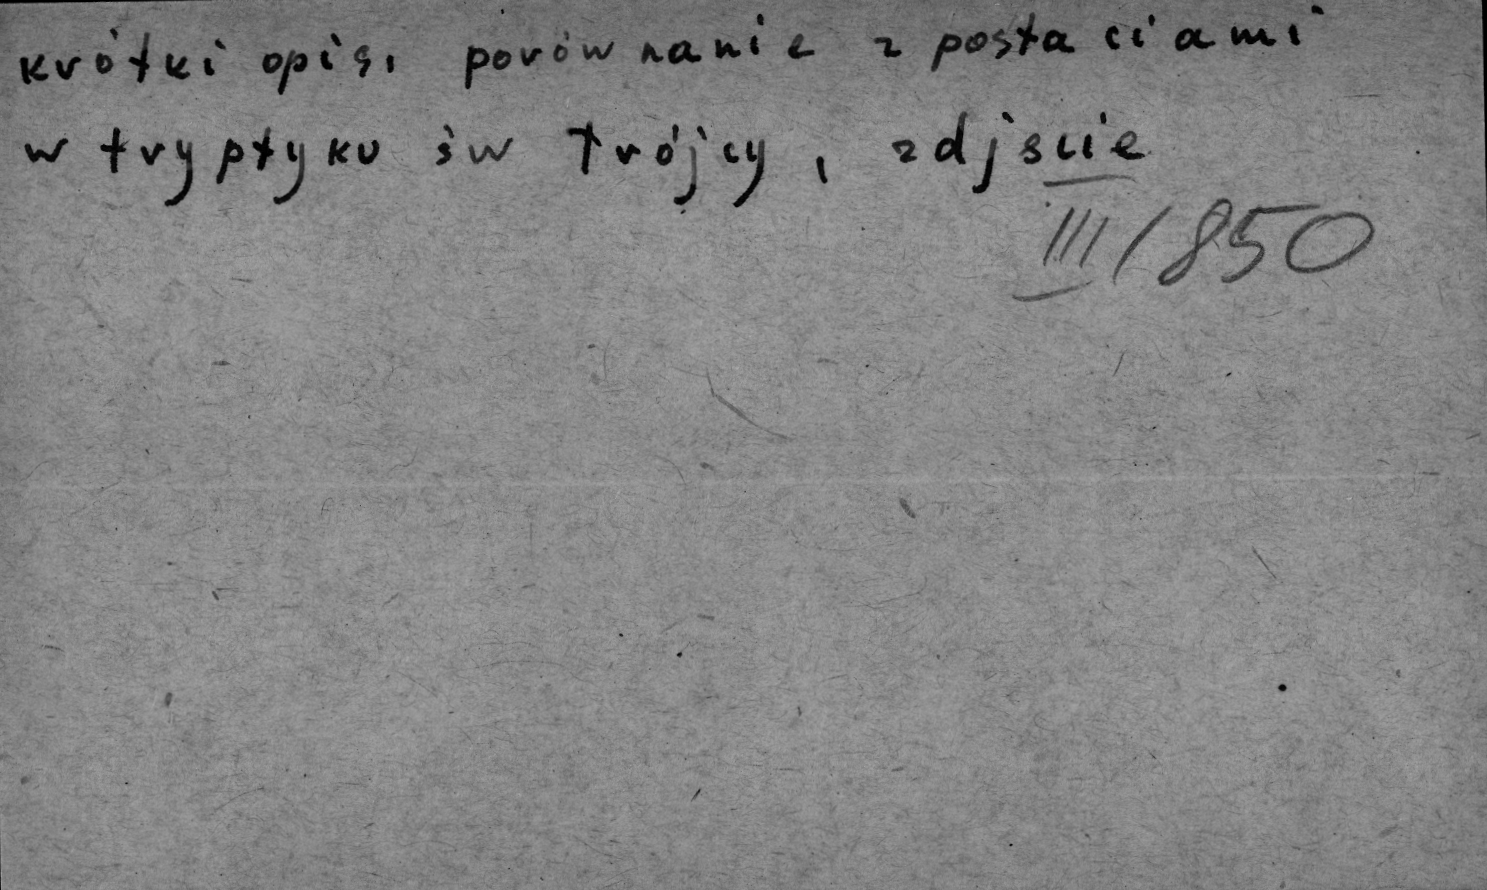 krótki opis, porównanie z postaciami
w tryptyku św Trójcy, zdjscie
III/850